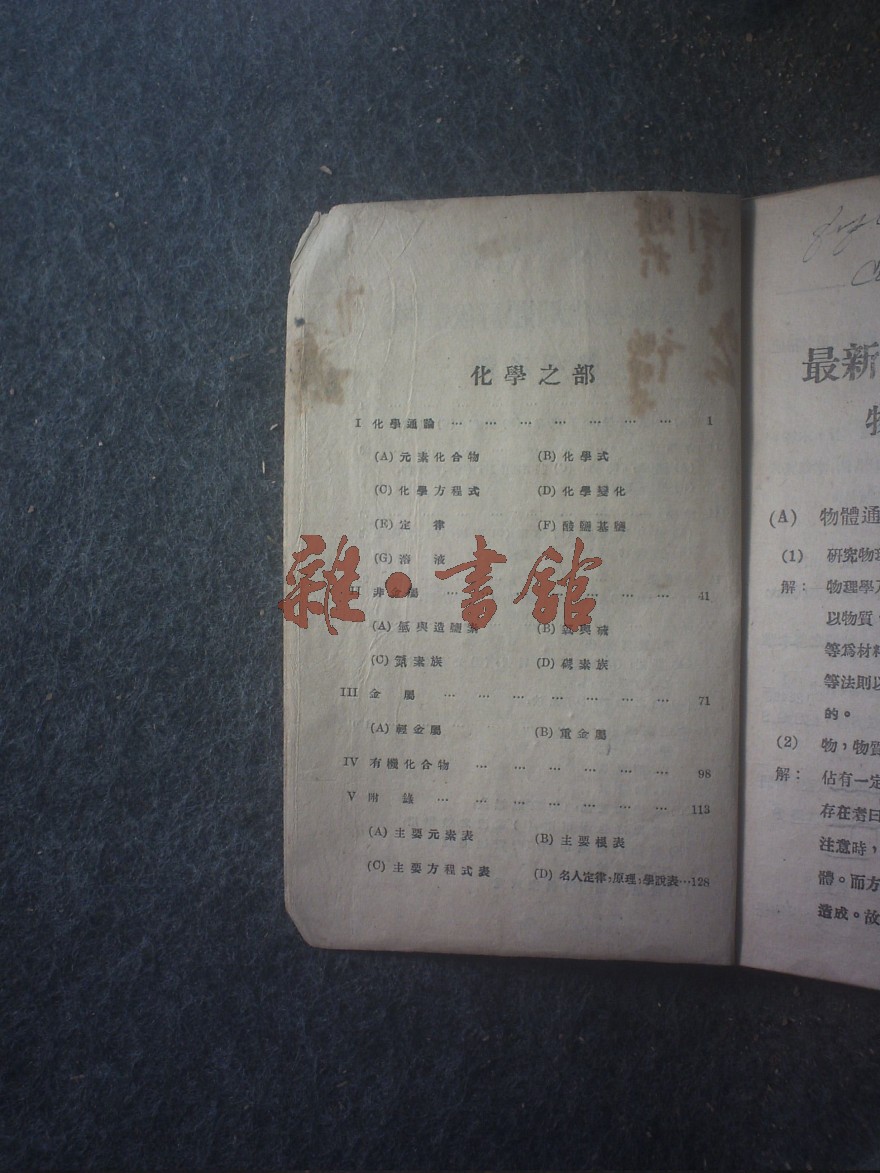 化學之部
I 化學通論 … … … … … … … 1
(A) 元素化合物 (B) 化學式
(C) 化學方程式 (D) 化學變化
(E) 定 律 (F) 酸鹽基鹽
(G) 溶 液
II 非金屬 … … … … … 41
(A) 氫與造鹽素 (B) 氧與硫
(C) 氮素族 (D) 碳素族
III 金 屬 … … … … … … … 71
(A) 輕金屬 (B) 重金屬
IV 有機化合物 … … … … … … 98
V 附 錄 … … … … … … … 113
(A) 主要元素表 (B) 主要根表
(C) 主要方程式表 (D) 名人定律,原理,學說表…128
雜·書館
最新
(A) 物體通
(1) 研究物理
解: 物理學乃
以物質,
等爲材料
等法則以
的。
(2) 物,物質
解: 佔有一定
存在者曰
注意時,
體。而方
造成。故